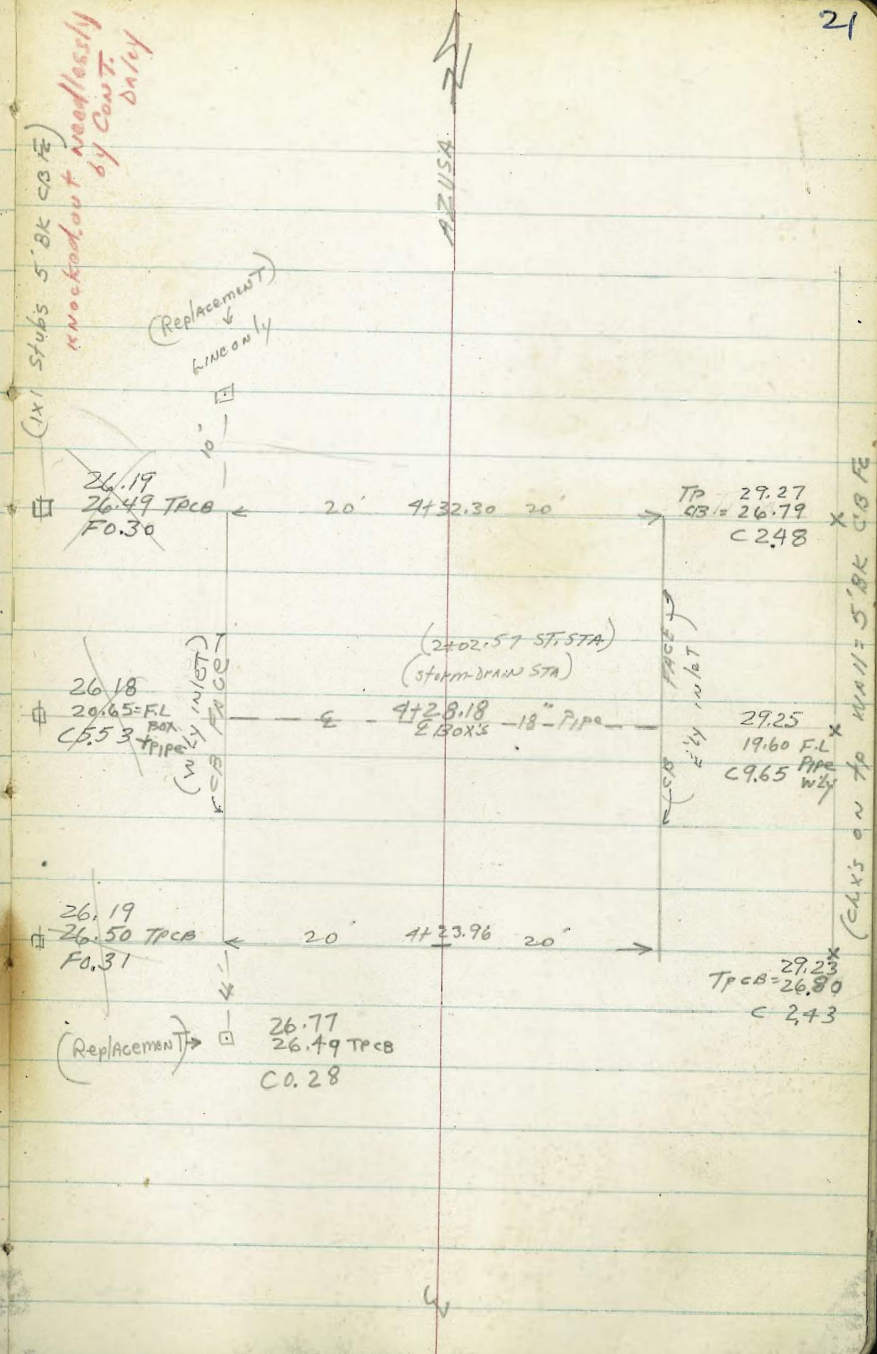 21
Knocked out needlessly
by CONT.
Daley
(1x1 Stubs 5' BK CB Fc)
N
AZUSA
(Replacement)
LINE ONLY
10'
26.19
26.49 TPCB
F0.30
20' 4+32.30 20'
TP 29.27
CB = 26.79
C 2.48
(2+02.57 ST. STA)
(Storm-Drain STA)
26.18
20.65 = F.L
BOX
+ PIPE
C5.53
(W'ly INLET)
CB FACE
℄ 4+28.18 18" Pipe
℄ BOX'S
CB FACE
(E'ly INLET)
29.25
19.60 F.L
Pipe
W'ly
C9.65
(Ch. X's ON TP WALL = 5' BK CB Fc
26.19
26.50 TPCB
F0.31
20' 4+23.96 20'
29.23
TPCB = 26.80
C 2.43
4'
(Replacement)
26.77
26.49 TPCB
C0.28